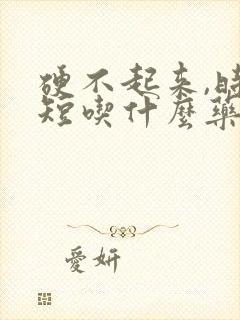 硬不起来,時
短喫什麼藥
愛妍